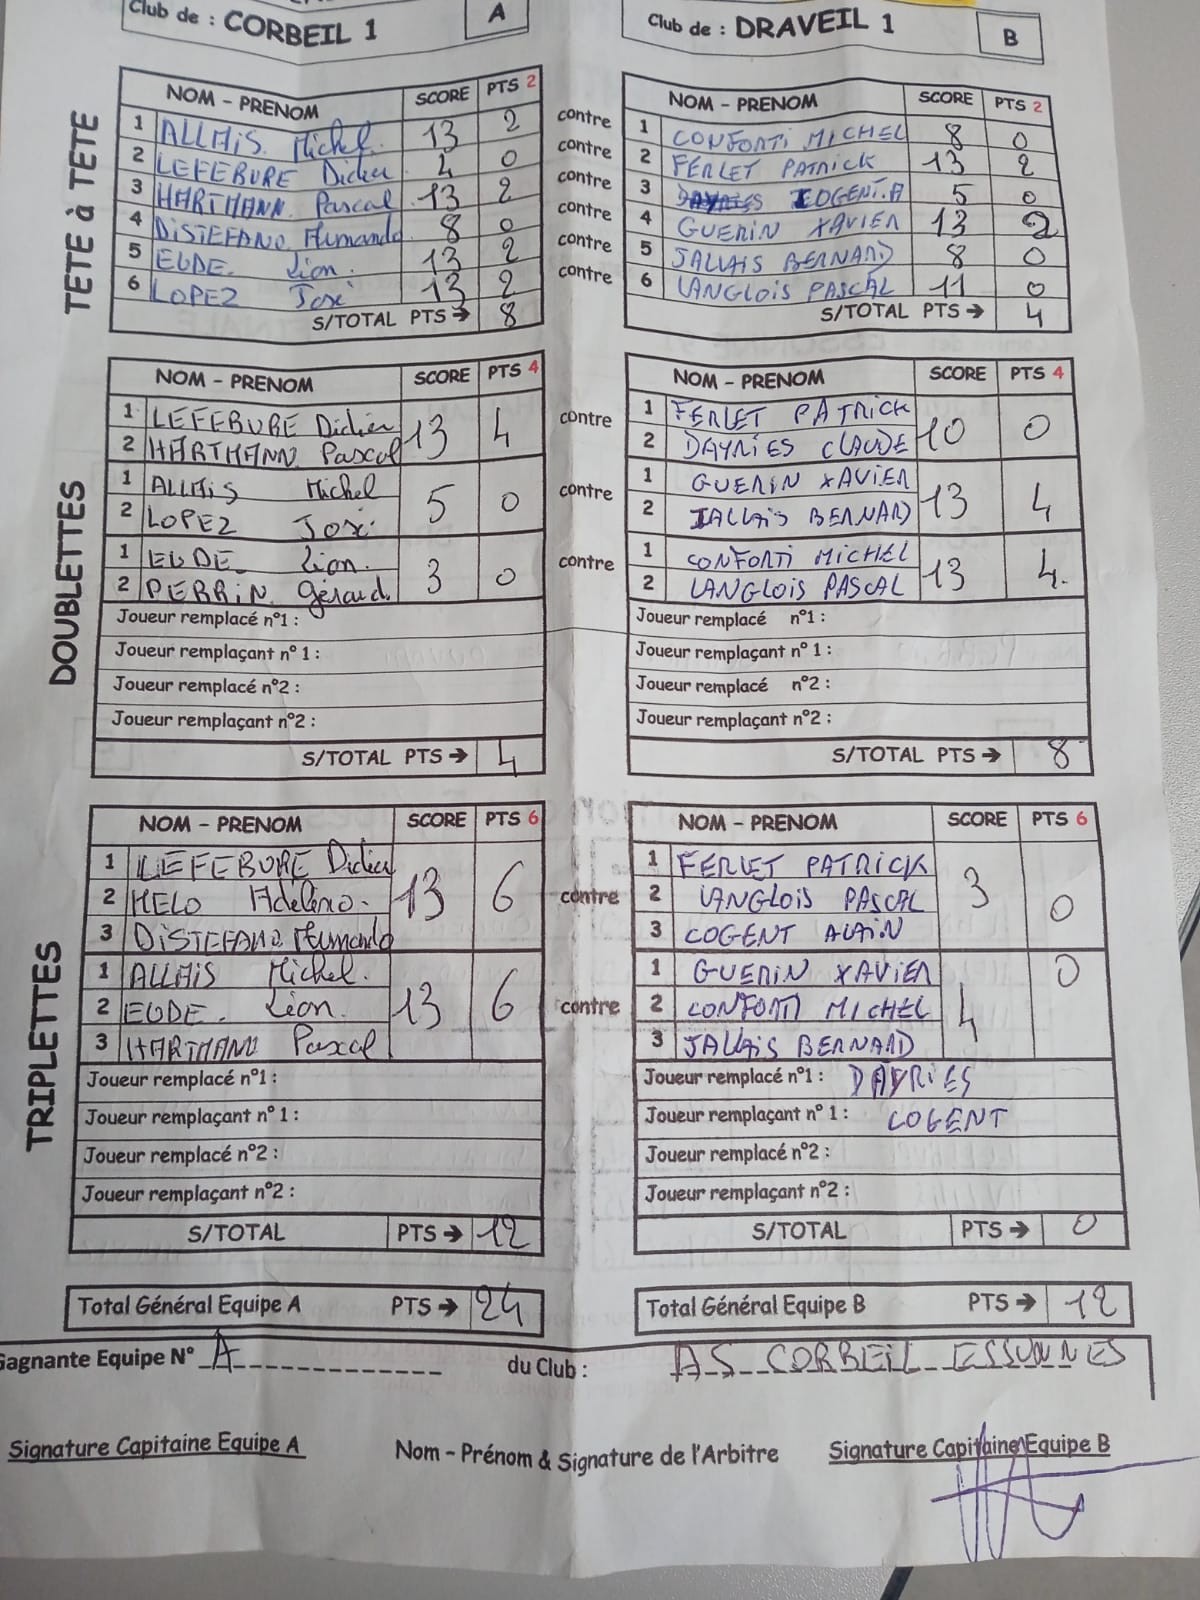 Club de : CORBEIL 1 A Club de : DRAVEIL 1 B
TETE à TETE
NOM - PRENOM SCORE PTS 2 NOM - PRENOM SCORE PTS 2
1 ALLAIS Michel 13 2 contre 1 CONFORTI MICHEL 8 0
2 LEFEBURE Didier 4 0 contre 2 FERLET PATRICK 13 2
3 HARTMANN Pascal 13 2 contre 3 COGENT.A 5 0
4 DISTEFANO Armando 8 0 contre 4 GUERIN XAVIER 13 2
5 EUDE Lion 13 2 contre 5 JALLAIS BERNARD 8 0
6 LOPEZ José 13 2 contre 6 LANGLOIS PASCAL 11 0
S/TOTAL PTS → 8 S/TOTAL PTS → 4
DOUBLETTES
NOM - PRENOM SCORE PTS 4 NOM - PRENOM SCORE PTS 4
1 LEFEBURE Didier 13 4 contre 1 FERLET PATRICK 10 0
2 HARTMANN Pascal 2 DAYRIES CLAUDE
1 ALLAIS Michel 5 0 contre 1 GUERIN XAVIER 13 4
2 LOPEZ José 2 JALLAIS BERNARD
1 EUDE Lion. 3 0 contre 1 CONFORTI MICHEL 13 4.
2 PERRIN Gérard 2 LANGLOIS PASCAL
Joueur remplacé n°1 : Joueur remplacé n°1 :
Joueur remplaçant n° 1 : Joueur remplaçant n° 1 :
Joueur remplacé n°2 : Joueur remplacé n°2 :
Joueur remplaçant n°2 : Joueur remplaçant n°2 :
S/TOTAL PTS → 4 S/TOTAL PTS → 8
TRIPLETTES
NOM - PRENOM SCORE PTS 6 NOM - PRENOM SCORE PTS 6
1 LEFEBURE Didier 1 FERLET PATRICK
2 MELO 13 6 contre 2 LANGLOIS PASCAL 3 0
3 DISTEFANO Armando 3 COGENT ALAIN
1 ALLAIS Michel. 1 GUERIN XAVIER
2 EUDE. Lion. 13 6 contre 2 CONFORTI MICHEL 4 0
3 HARTMANN Pascal 3 JALLAIS BERNARD
Joueur remplacé n°1 : Joueur remplacé n°1 : DAYRIES
Joueur remplaçant n° 1 : Joueur remplaçant n° 1 : COGENT
Joueur remplacé n°2 : Joueur remplacé n°2 :
Joueur remplaçant n°2 : Joueur remplaçant n°2 :
S/TOTAL PTS → 12 S/TOTAL PTS → 0
Total Général Equipe A PTS → 24 Total Général Equipe B PTS → 12
Gagnante Equipe N° A du Club : AS CORBEIL ESSONNES
Signature Capitaine Equipe A Nom - Prénom & Signature de l'Arbitre Signature Capitaine Equipe B